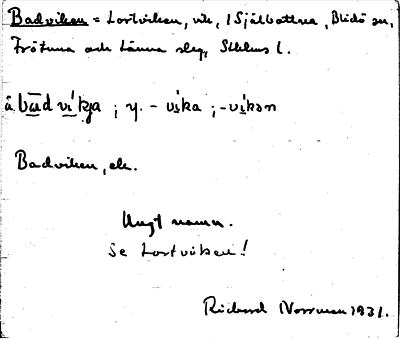 Badviken = Lortviken, vik, i Själbottna, Blidö sn,
Frötuna och Länna slg, Sthlms l.
å. bādvi̍kja ; y. - vi̍ka ; -vi̍kən
Badviken, ek.
Ungt namn.
Se Lortviken!
Richard Norrman 1931.